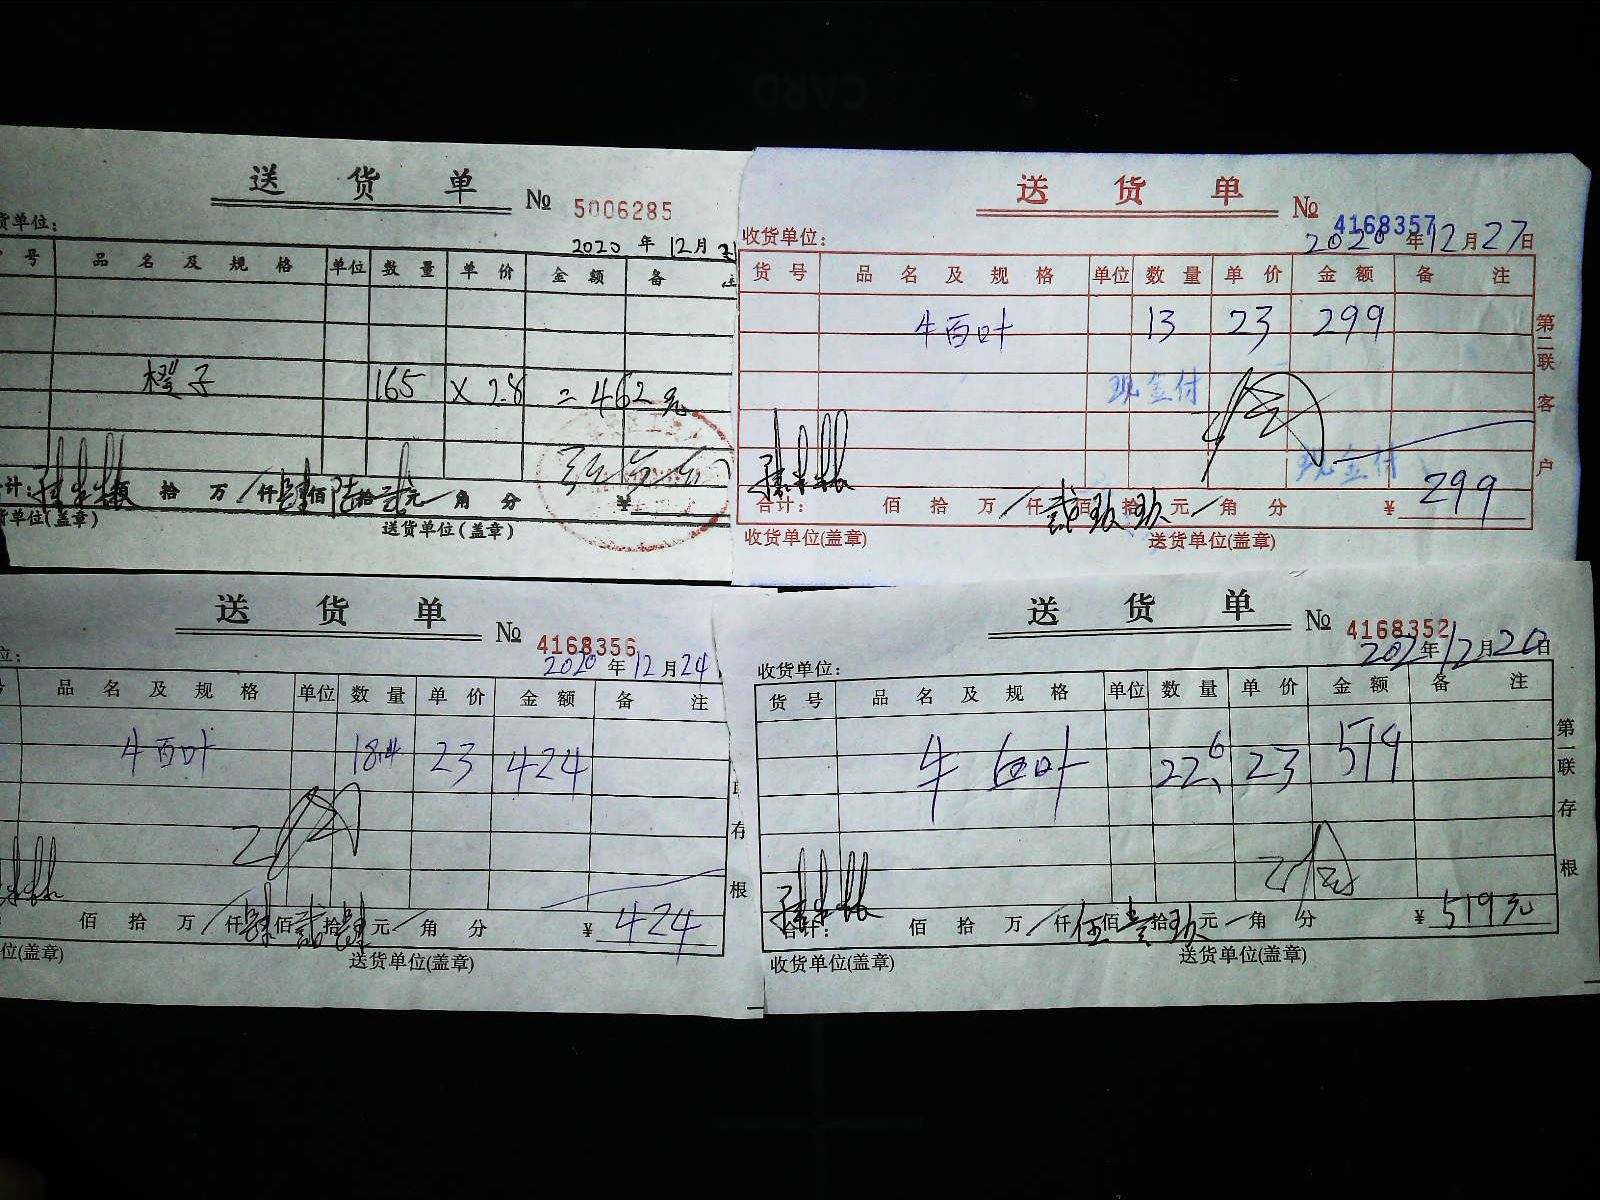 送 货 单
№ 5006285
货单位:
2020 年 12 月
号 品 名 及 规 格 单位 数 量 单 价 金 额 备 注
橙子 165 × 2.8 = 462元
计: 拾 万 / 仟 肆 佰 陆 拾 贰 元 一 角 分 ¥
货单位(盖章) 送货单位(盖章)
送 货 单
№ 4168357
收货单位: 2020 年 12 月 27 日
货 号 品 名 及 规 格 单位 数 量 单 价 金 额 备 注
牛百叶 13 23 299
现金付
现金付
合计: 佰 拾 万 / 仟 贰 佰 玖 拾 玖 元 一 角 分 ¥ 299
收货单位(盖章) 送货单位(盖章)
第二联 客户
送 货 单
№ 4168356
位: 2020 年 12 月 24
号 品 名 及 规 格 单位 数 量 单 价 金 额 备 注
牛百叶 18.4 23 424
佰 拾 万 / 仟 肆 佰 贰 拾 肆 元 一 角 分 ¥ 424
位(盖章) 送货单位(盖章)
存根
送 货 单
№ 4168352
收货单位: 年 12 月 20 日
货 号 品 名 及 规 格 单位 数 量 单 价 金 额 备 注
牛百叶 22.6 23 519
合计: 佰 拾 万 / 仟 伍 佰 壹 拾 玖 元 一 角 分 ¥ 519元
收货单位(盖章) 送货单位(盖章)
第一联 存根